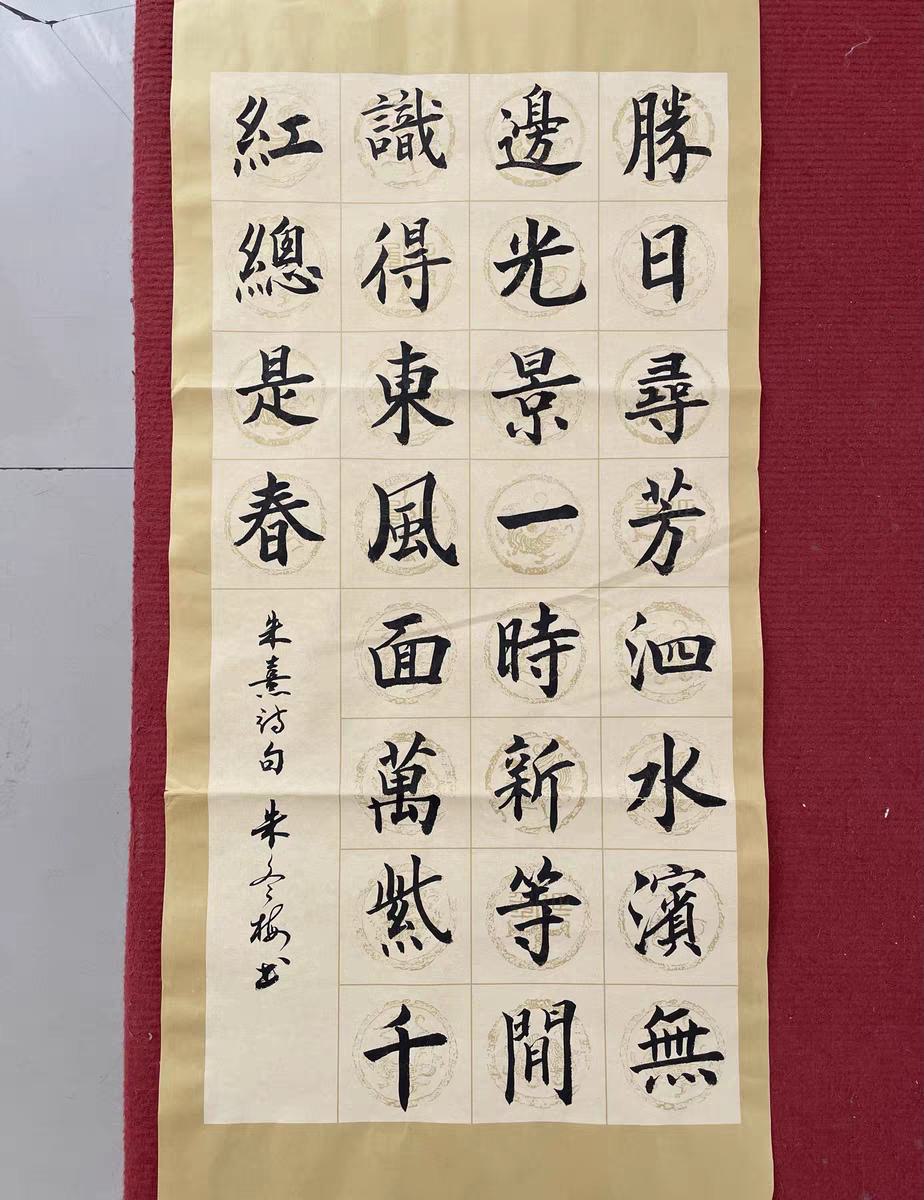 勝日尋芳泗水濱無
邊光景一時新等閒
識得東風面萬紫千
紅總是春
朱熹詩句 朱冬梅书